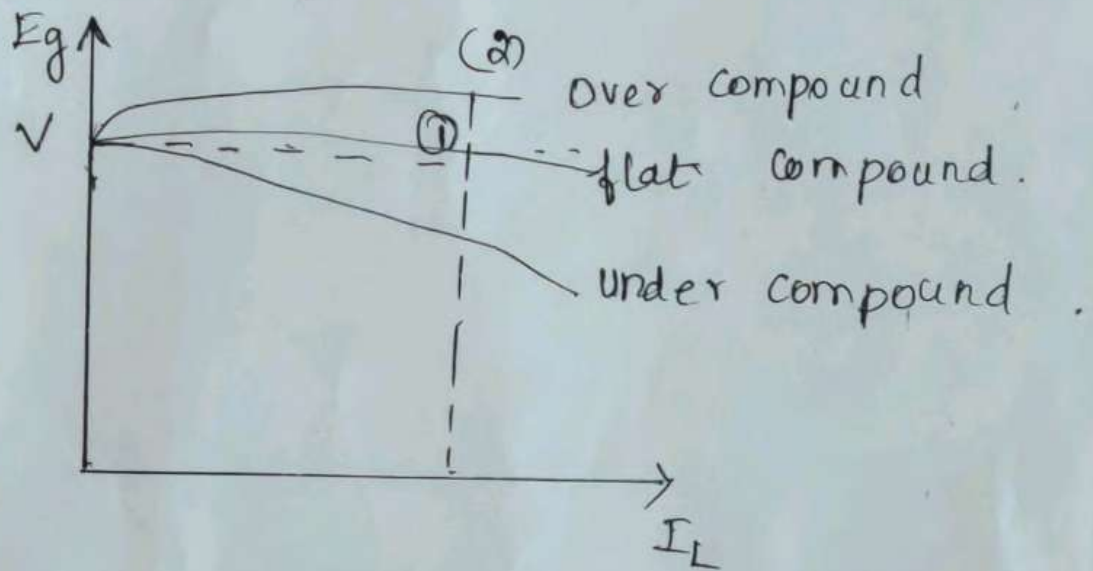 Eg
(2)
Over compound
V
①
flat compound.
under compound.
IL